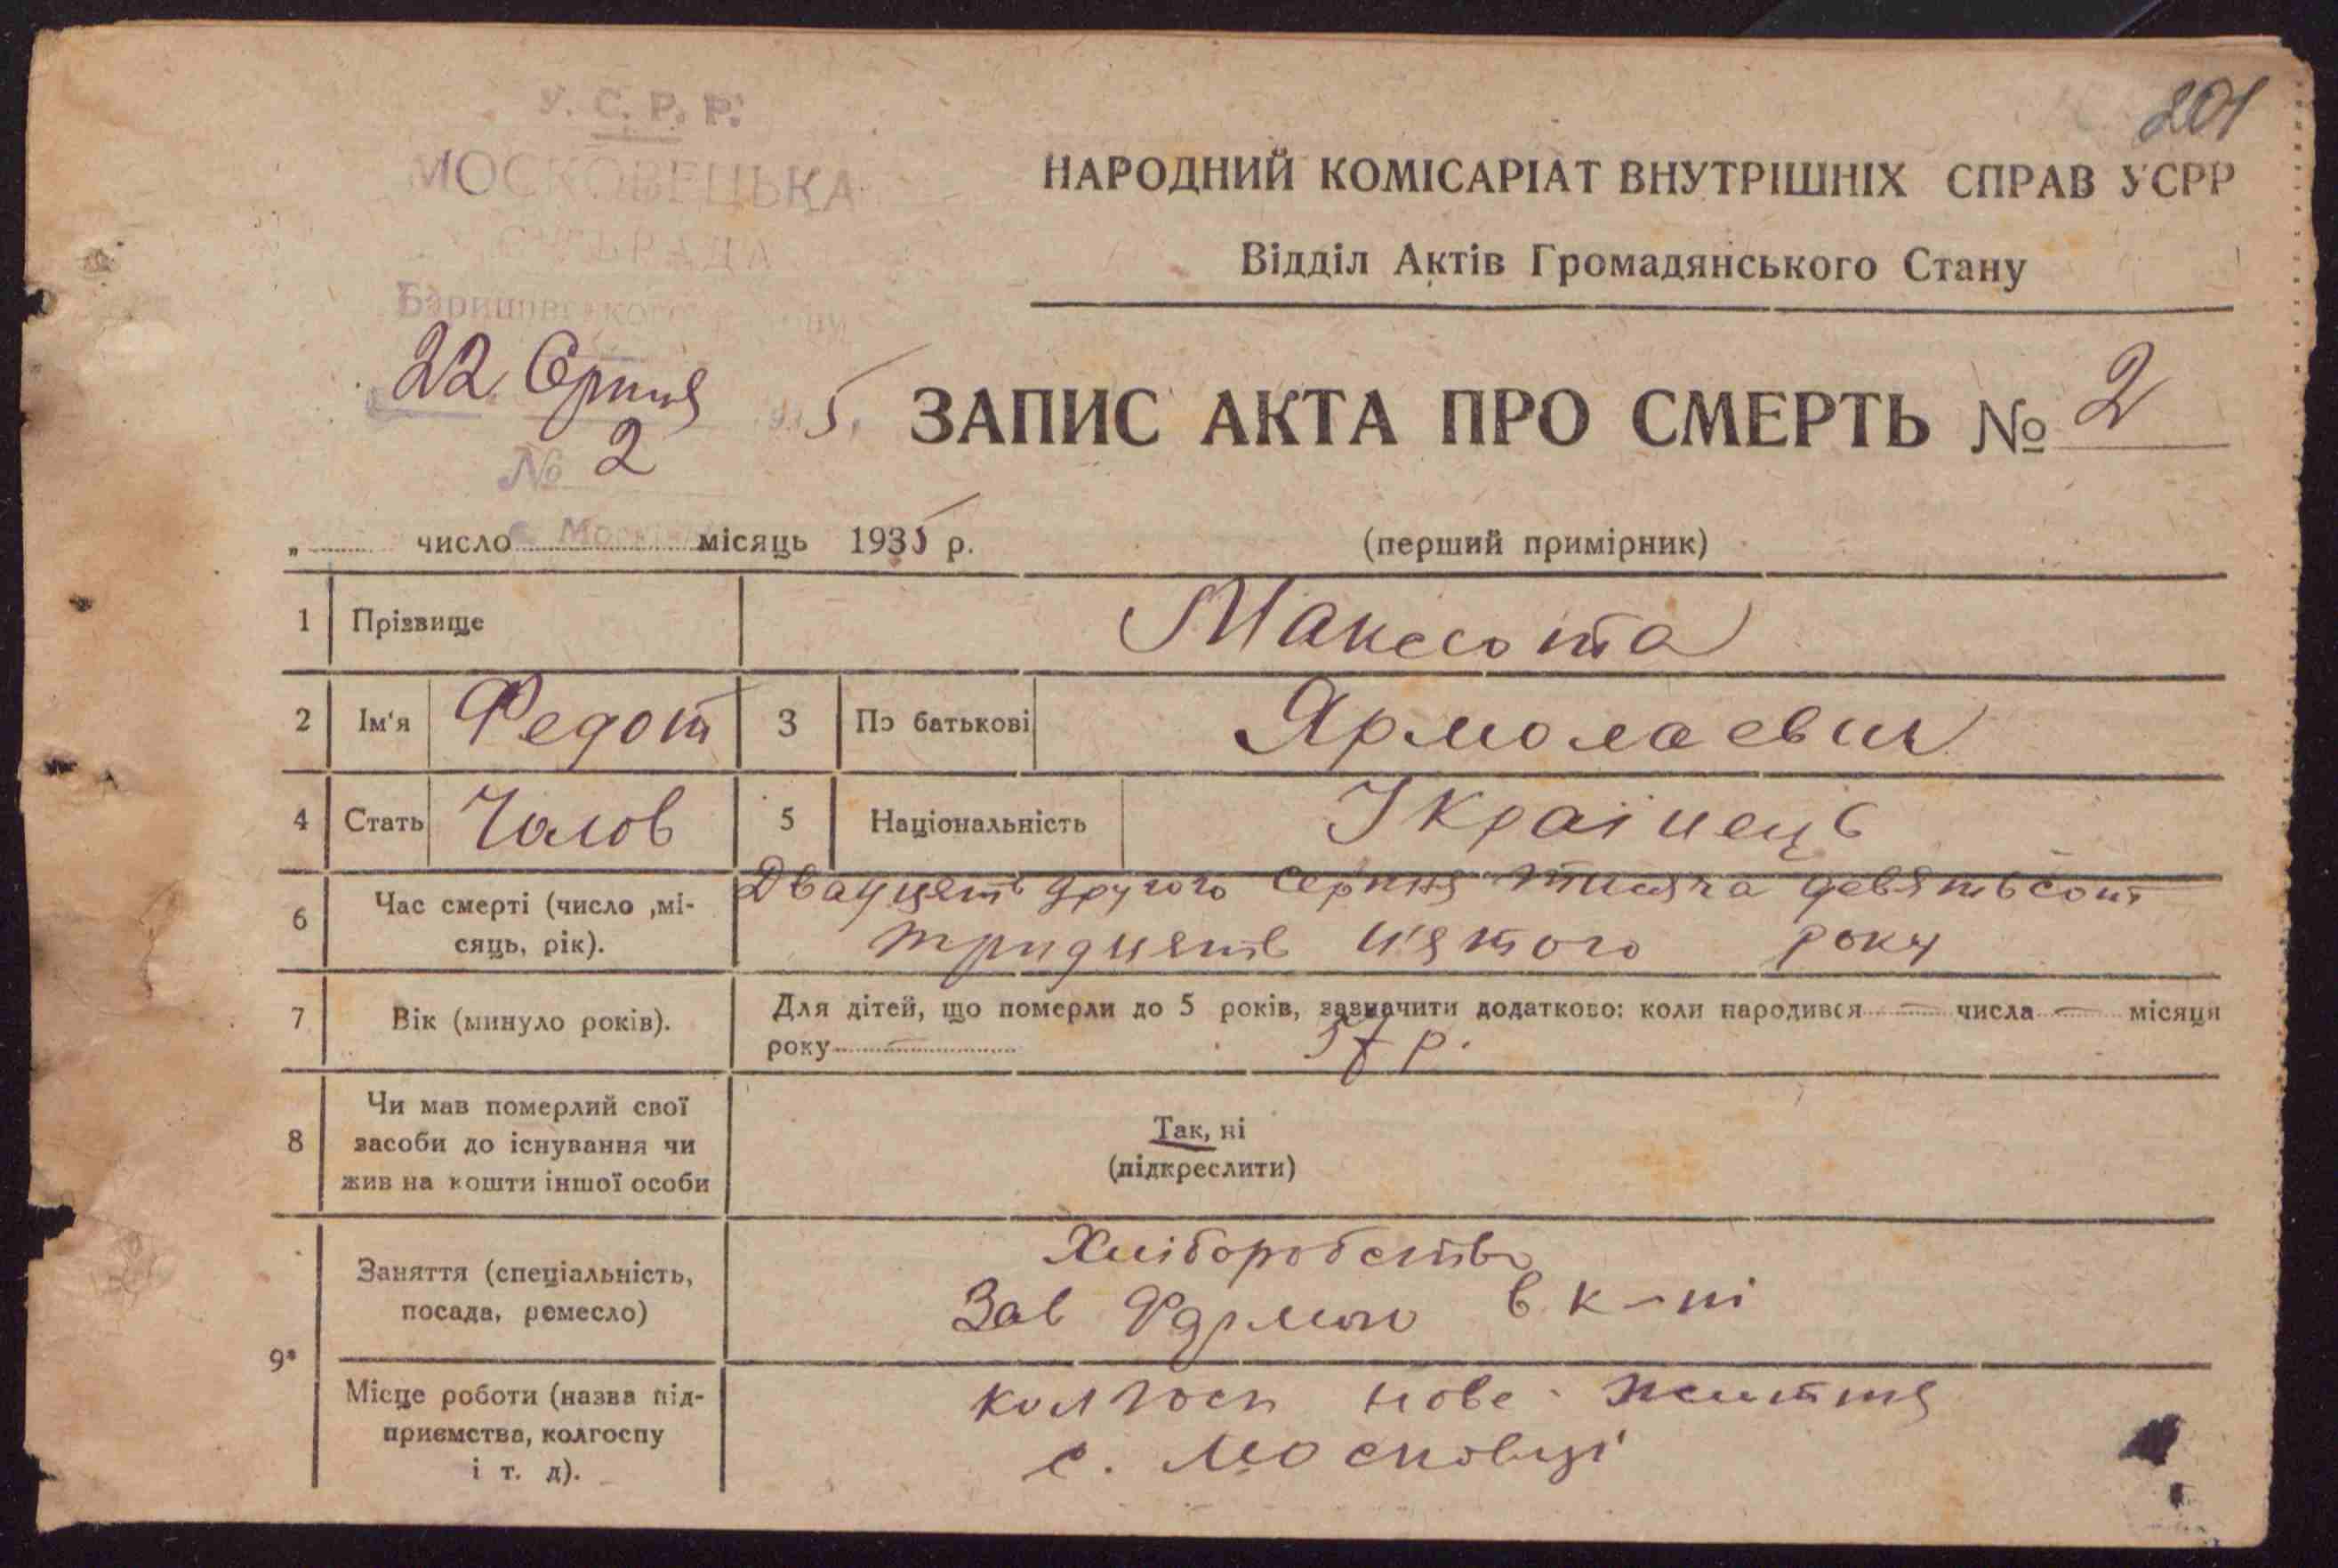 201
У. С. Р. Р.
МОСКОВЕЦЬКА
СІЛЬРАДА
Баришівського
22 Серпня 1935
№ 2
НАРОДНИЙ КОМІСАРІАТ ВНУТРІШНІХ СПРАВ УСРР
Відділ Актів Громадянського Стану
ЗАПИС АКТА ПРО СМЕРТЬ № 2
„ число місяць 1935 р.
(перший примірник)
1 Прізвище Макcюта
2 Ім'я Федот 3 По батькові Ярмолаевич
4 Стать Чолов 5 Національність Українець
6 Час смерті (число ,мі-
сяць, рік).
Двадцять другого серпня тисяча девятьсот
тридцять п'ятого року
7 Вік (минуло років).
Для дітей, що померли до 5 років, зазначити додатково: коли народився — числа — місяця
року — 37 р.
8 Чи мав померлий свої
засоби до існування чи
жив на кошти іншої особи
Так, ні
(підкреслити)
9*
Заняття (спеціальність,
посада, ремесло)
Хліборобство
Зав Фармою в к-пі
Місце роботи (назва під-
приємства, колгоспу
і т. д).
колгосп нове життя
с. Московці